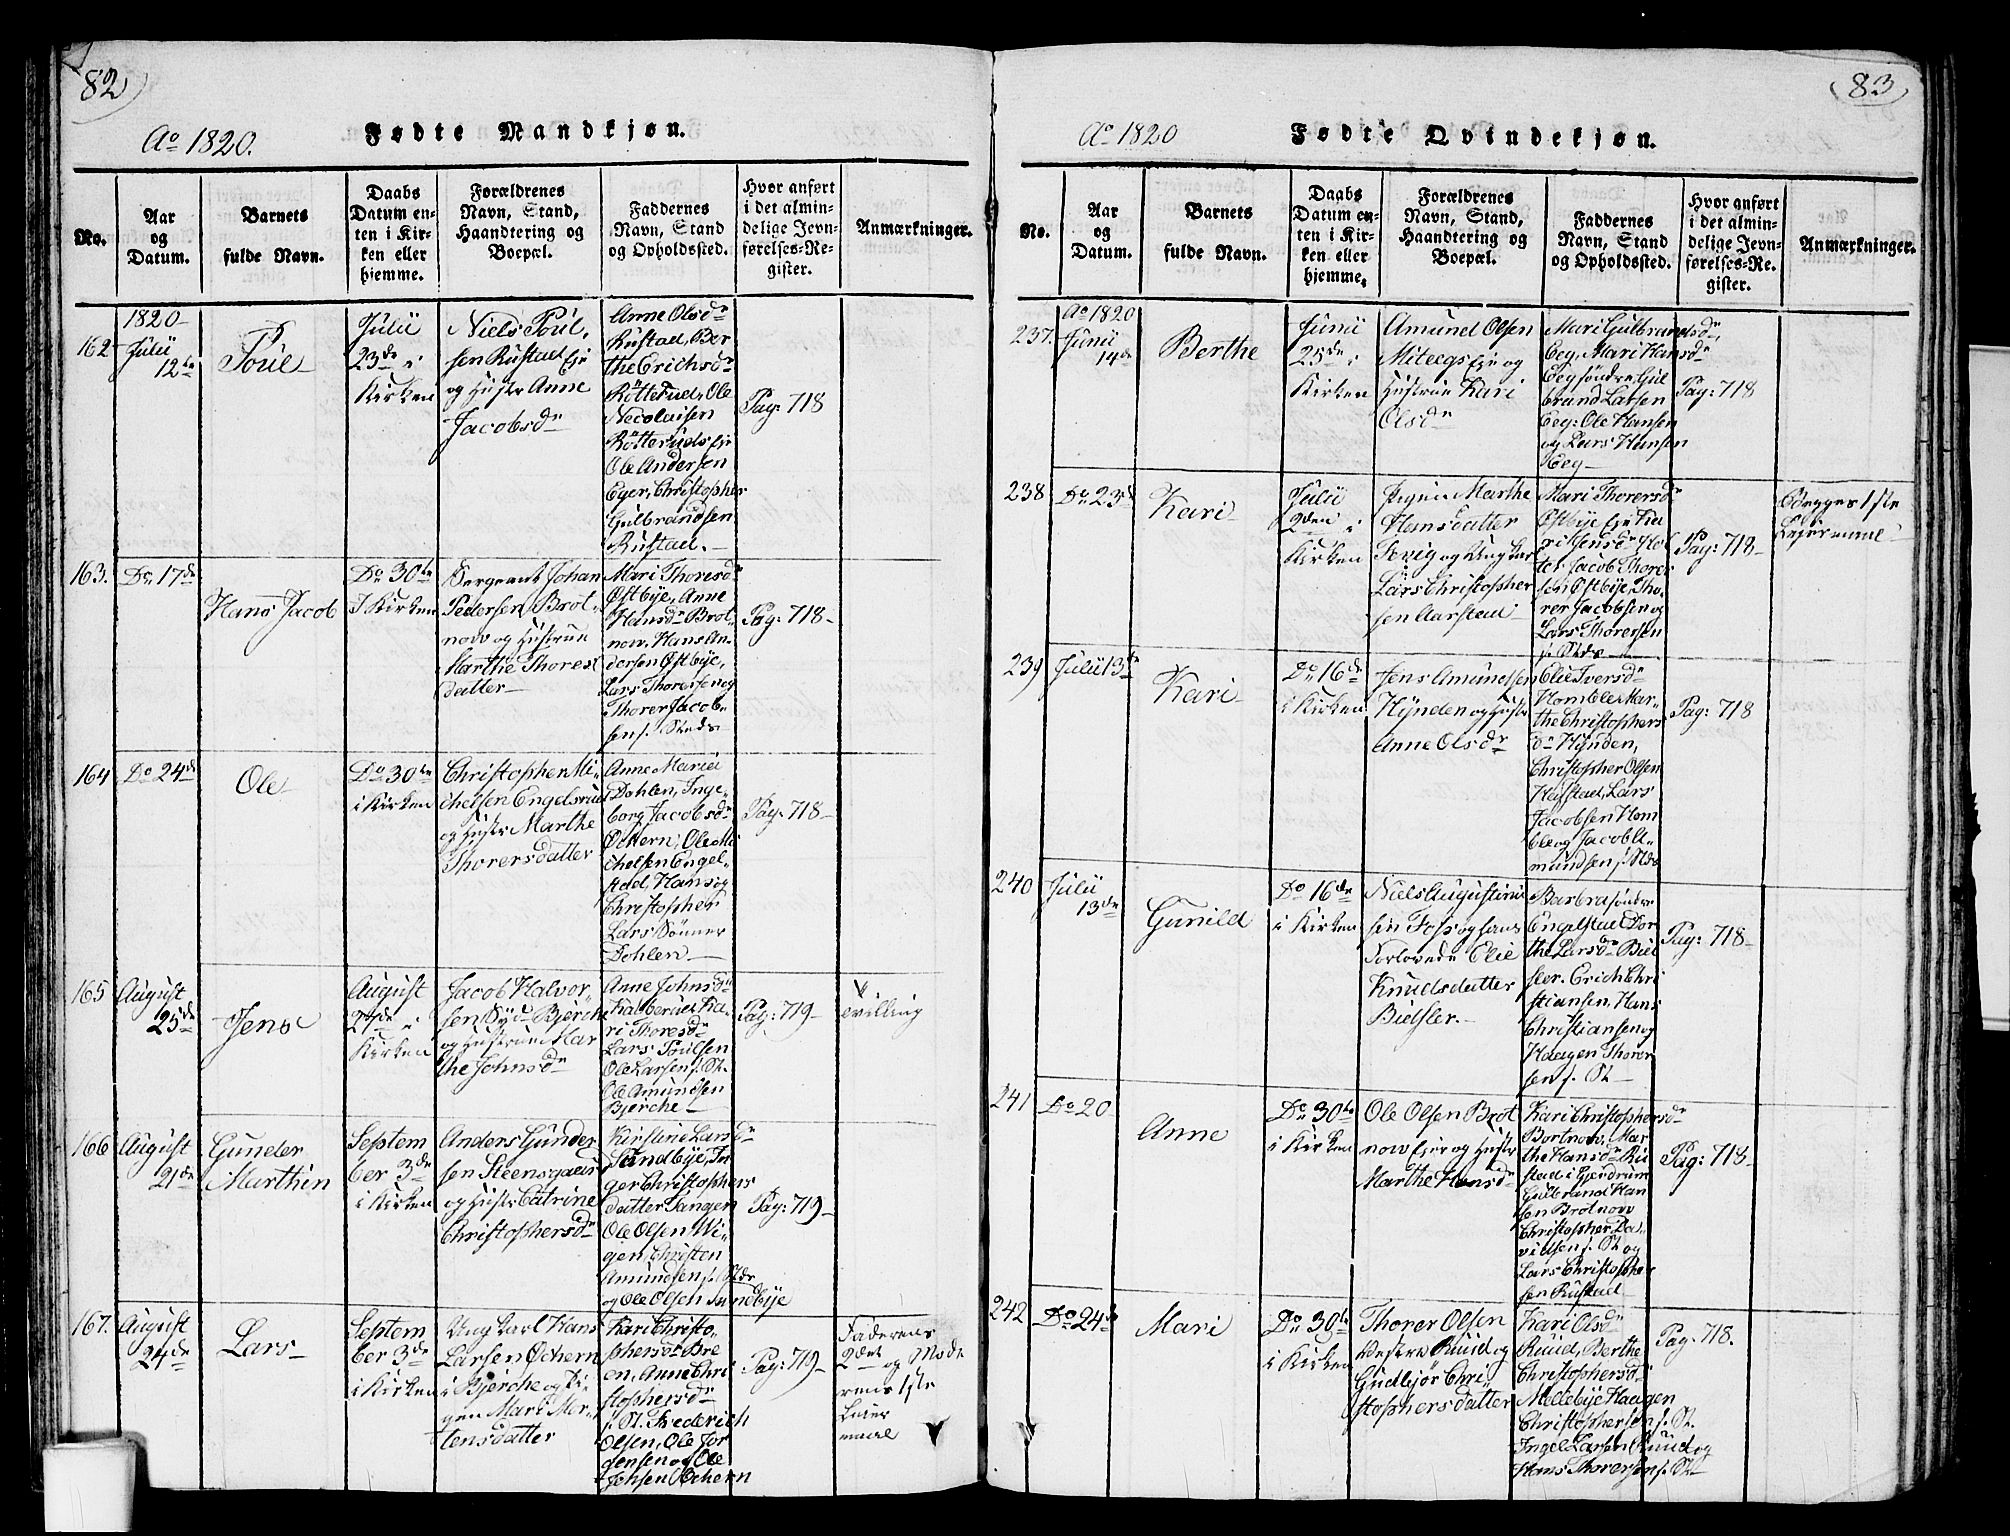 82
Ao 1820.
Fødte Mandkjøn.
No.
Aar
og
Datum.
Barnets
fulde Navn.
Daabs
Datum en-
ten i Kir-
ken eller
hjemme.
Forældrenes
Navn, Stand,
Haandtering og
Boepæl.
Faddernes
Navn, Stand
og Opholdssted.
Hvor anført
i det almin-
delige Jevn-
førelses-Re-
gister.
Anmærkninger.
162
1820
Julii
12te
Poul
Julii
23de i
Kirken
Niels Poul-
sen Rustad Eje
og Hustr Anne
Jacobsdr
Anne Olsdr
Rustad, Ber
the Erichsdr
Røtterud, Ole
Necolaisen
Røtteruds Eje
Ole Andersen
Eger, Christopher
Gulbrandsen
Rustad.
Pag: 718
163.
Do 17de
Hans Jacob
Do 30te
I Kirken
Sergeant Johan
Pedersen Brot-
now og Hustrue
Marthe Thores
datter
Mari Thoresdr
Østbye, Anne
Hansdr Brot-
now, Hans An-
dersen Østbye,
Lars Thorersen og
Thorer Jacob-
sen s. Steds
Pag: 718
164
Do 24de
Ole
Do 30te
i Kirken
Christopher Mi-
chelsen Engelsrud
og Hustr Marthe
Thorersdatter
Anne Maria
Dohlen, Inge-
borg Jacobsdr
Ochern, Ole Mi
chelsen Engel-
stad, Hans og
Christopher
Lars Sønner
Dohlen
Pag: 718
165
August
25de
Jens
August
27de i
Kirken
Jacob Halvor-
sen Syd Bjerche
og Hustrue Mar
the Johnsdr
Anne Johnsdr
Kalberud, Ka-
ri Thoresdr
Lars Poulsen
Ole Larsen s. St.
Ole Amundsen
Bjerche
Pag: 719
tvilling
166
August
21de
Gunder
Marthin
Septem
ber 3de
i Kirken
Anders Gunder
sen Steensgaard
og Hustr Catrine
Christophersdr
Kirstine Larsdr
Sundbye, In
ger Christophers
datter Tangen
Ole Olsen Wi-
gen, Christen
Amundsen s. Stds
og Ole Olsen Sundbye
Pag: 719
167.
August
24de
Lars
Septem
ber 3de
i Kirken
Ung Karl Hans
Larsen Ochern
i Bjerche og Pi-
gen Mari Mor-
tensdatter
Kari Christo-
phersdr Bre
en, Anne Chri
stophersdr
s. St. Frederich
Olsen, Ole Jor
gensen og Ole
Johsen Ochern
Pag: 719
Faderens
2det og Mode
rens 1ste
Leier
maal
83
Ao 1820
Fødte Qvindekjøn.
No.
Aar
og
Datum.
Barnets
fulde Navn.
Daabs
Datum en-
ten i Kir-
ken eller
hjemme.
Forældrenes
Navn, Stand,
Haandtering og
Boepæl.
Faddernes
Navn, Stand
og Opholdssted.
Hvor anført
i det almin-
delige Jevn-
førelses-Re-
gister.
Anmærkninger.
237.
Ao 1820
Junii
14de
Berthe
Junii
25de i
Kirken
Amund Olsen
Miteegs Eje og
Hustrue Kari
Olsdr
Mari Gulbrandsdr
Eeg, Mari Hansdr
Eeg søndre, Gul
brand Larsen
Eeg: Ole Hansen
og Lars Hansen
Eeg
Pag: 718
238
Do 23de
Kari
Julii
2den i
Kirken
Pigen Marthe
Hansdatter
og Ung Karl
Lars Christopher
sen Aarstad
Mari Thorersdr
Østbye Eje
Jacob Thorer
sen Østbye, Tho-
rer Jacobsen og
Lars Thorersen
s. Stds
Pag: 718
Begges 1ste
Leiermaal
239
Julii 13de
Kari
Do 16de
i Kirken
Jens Amundsen
Hynden og Hustr
Anne Olsdr
Elie Iversdr
Homble, Mar-
the Christophers
dr Hynden,
Christopher Olsen
Heistad, Lars
Jacobsen Hom
ble og Jacob A-
mundsen s. Stds
Pag: 718
240
Julii
13de
Gunild
Do 16de
i Kirken
Niels Augustinu
sen Foss og hans
Forlovede Elie
Knudsdatter
Bielsler.
Barbra søndre
Engelstad, Dor
the Larsdr Biel
sler. Erich Chri
stiansen, Hans
Christiansen og
Haagen Thorer
sen s. St
Pag: 718
241
Do 20
Anne
Do 30te
i Kirken
Ole Olsen Brot
now Eje og Hustr
Marthe Hansdr
Kari Christophersdr
Bortnow, Mar
the Hansdr Ru
stad i Gjerdrum
Gulbrand Han
sen Brotnow
Christopher Da-
vidsen s. St og
Lars Christopher
sen Rustad
Pag: 718
242
Do 24de
Mari
Do 30te
i Kirken
Thorer Olsen
Vestre Ruud og
Gudbjør Chri-
stophersdatter
Kari Olsdr
Ruud, Berthe
Christophersdr
Mellebye, Haagen
Christophersen s. St.
Ingel Larsen Ruud og
Hans Thorersen s. St
Pag. 718.